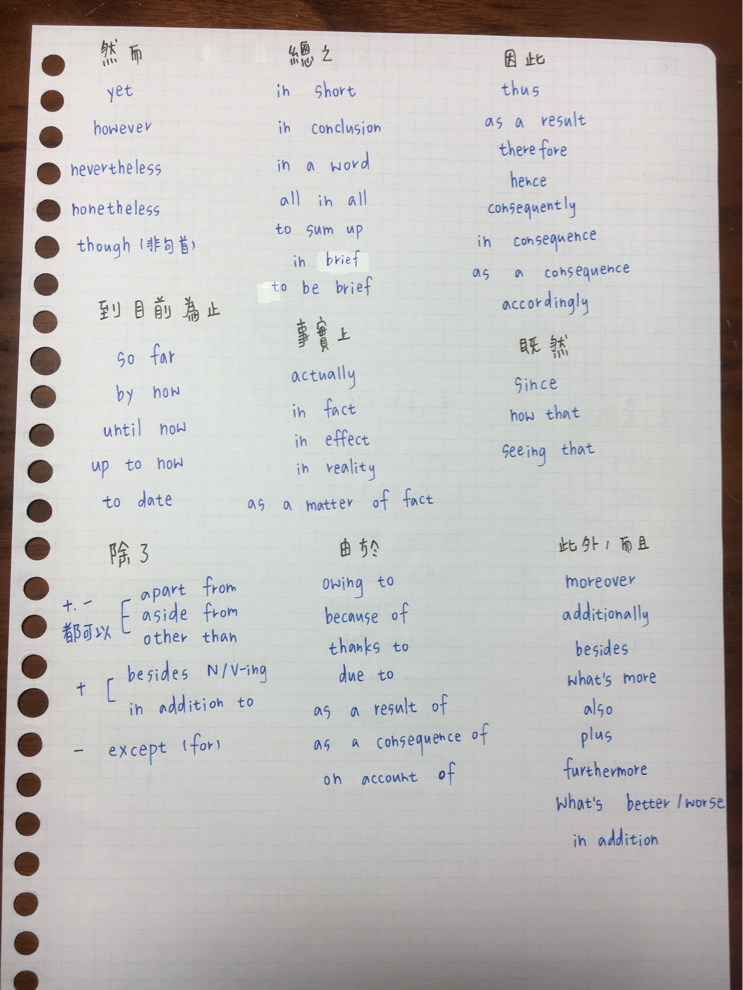 然而
yet
however
nevertheless
nonetheless
though (非句首)
總之
in short
in conclusion
in a word
all in all
to sum up
in brief
to be brief
因此
thus
as a result
therefore
hence
consequently
in consequence
as a consequence
accordingly
到目前為止
so far
by now
until now
up to now
to date
事實上
actually
in fact
in effect
in reality
as a matter of fact
既然
since
now that
seeing that
除了
+. -
都可以
apart from
aside from
other than
+
besides N/V-ing
in addition to
- except (for)
由於
owing to
because of
thanks to
due to
as a result of
as a consequence of
on account of
此外,而且
moreover
additionally
besides
what's more
also
plus
furthermore
What's better/worse
in addition